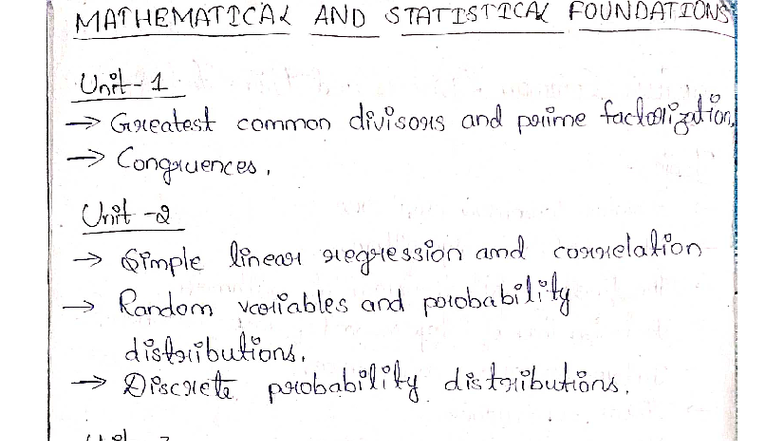 MATHEMATICAL AND STATISTICAL FOUNDATIONS
Unit-1
→ Greatest common divisors and prime factorization.
→ Congruences.
Unit-2
→ Simple linear regression and correlation
→ Random variables and probability
distributions.
→ Discrete probability distributions.